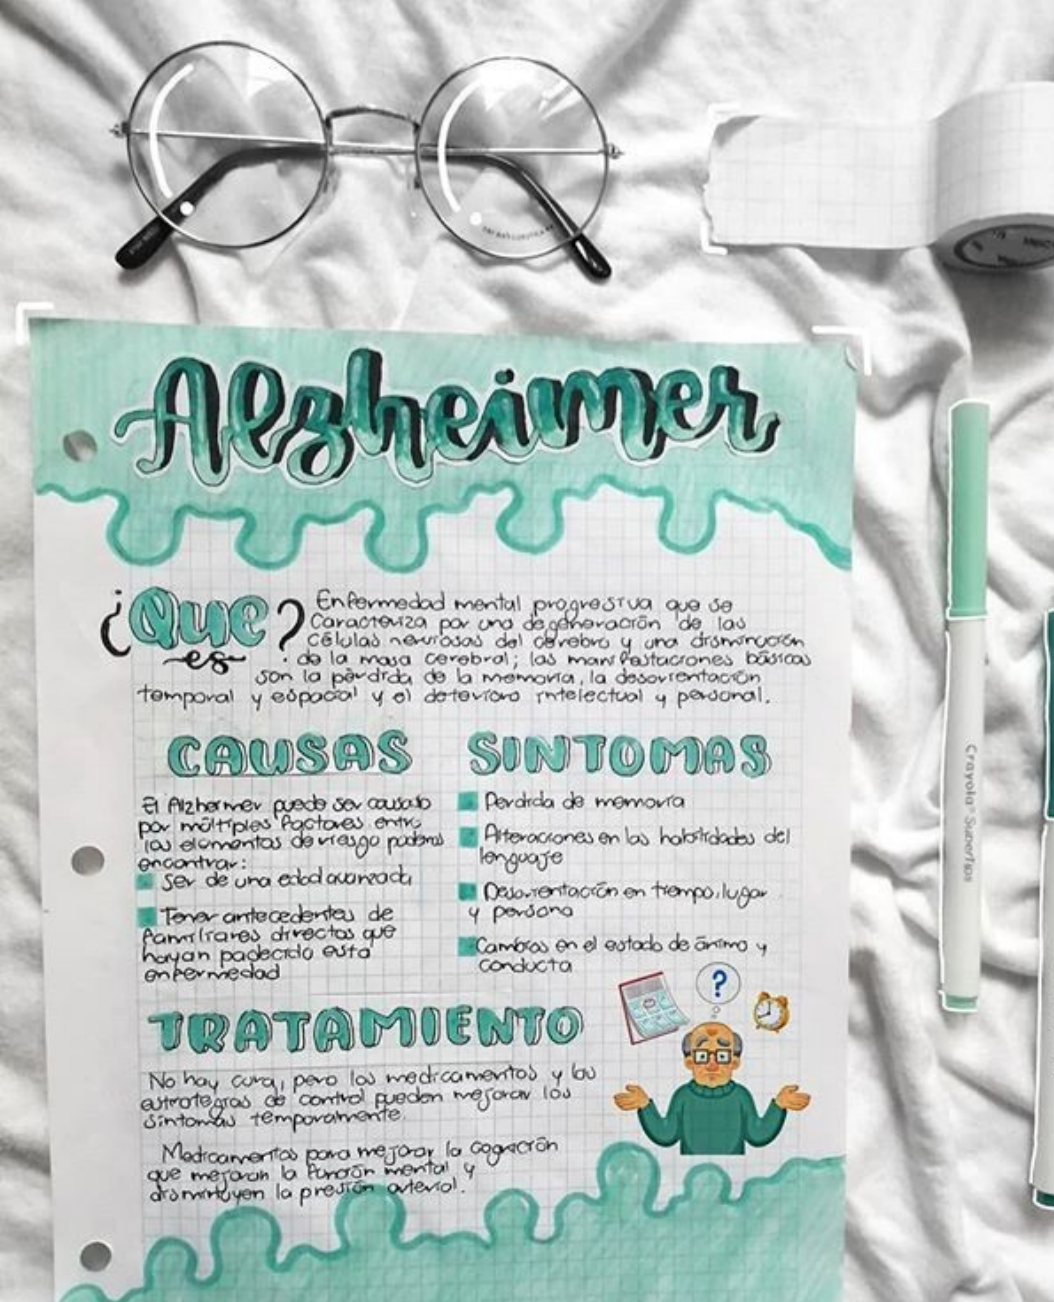 Alzheimer
¿Que es?
Enfermedad mental progresiva que se
caracteriza por una degeneración de las
células nerviosas del cerebro y una disminución
de la masa cerebral; las manifestaciones básicas
son la pérdida de la memoria, la desorientación
temporal y espacial y el deterioro intelectual y personal.
CAUSAS
El Alzheimer puede ser causado
por múltiples factores entre
los elementos de riesgo podemos
encontrar:
Ser de una edad avanzada
Tener antecedentes de
familiares directos que
hayan padecido esta
enfermedad
SINTOMAS
Perdida de memoria
Alteraciones en las habilidades del
lenguaje
Desorientación en tiempo, lugar
y persona
Cambios en el estado de ánimo y
conducta
TRATAMIENTO
No hay cura, pero los medicamentos y las
estrategias de control pueden mejorar los
síntomas temporalmente.
Medicamentos para mejorar la cognición
que mejoran la función mental y
disminuyen la presión arterial.
?
Crayola Supertips